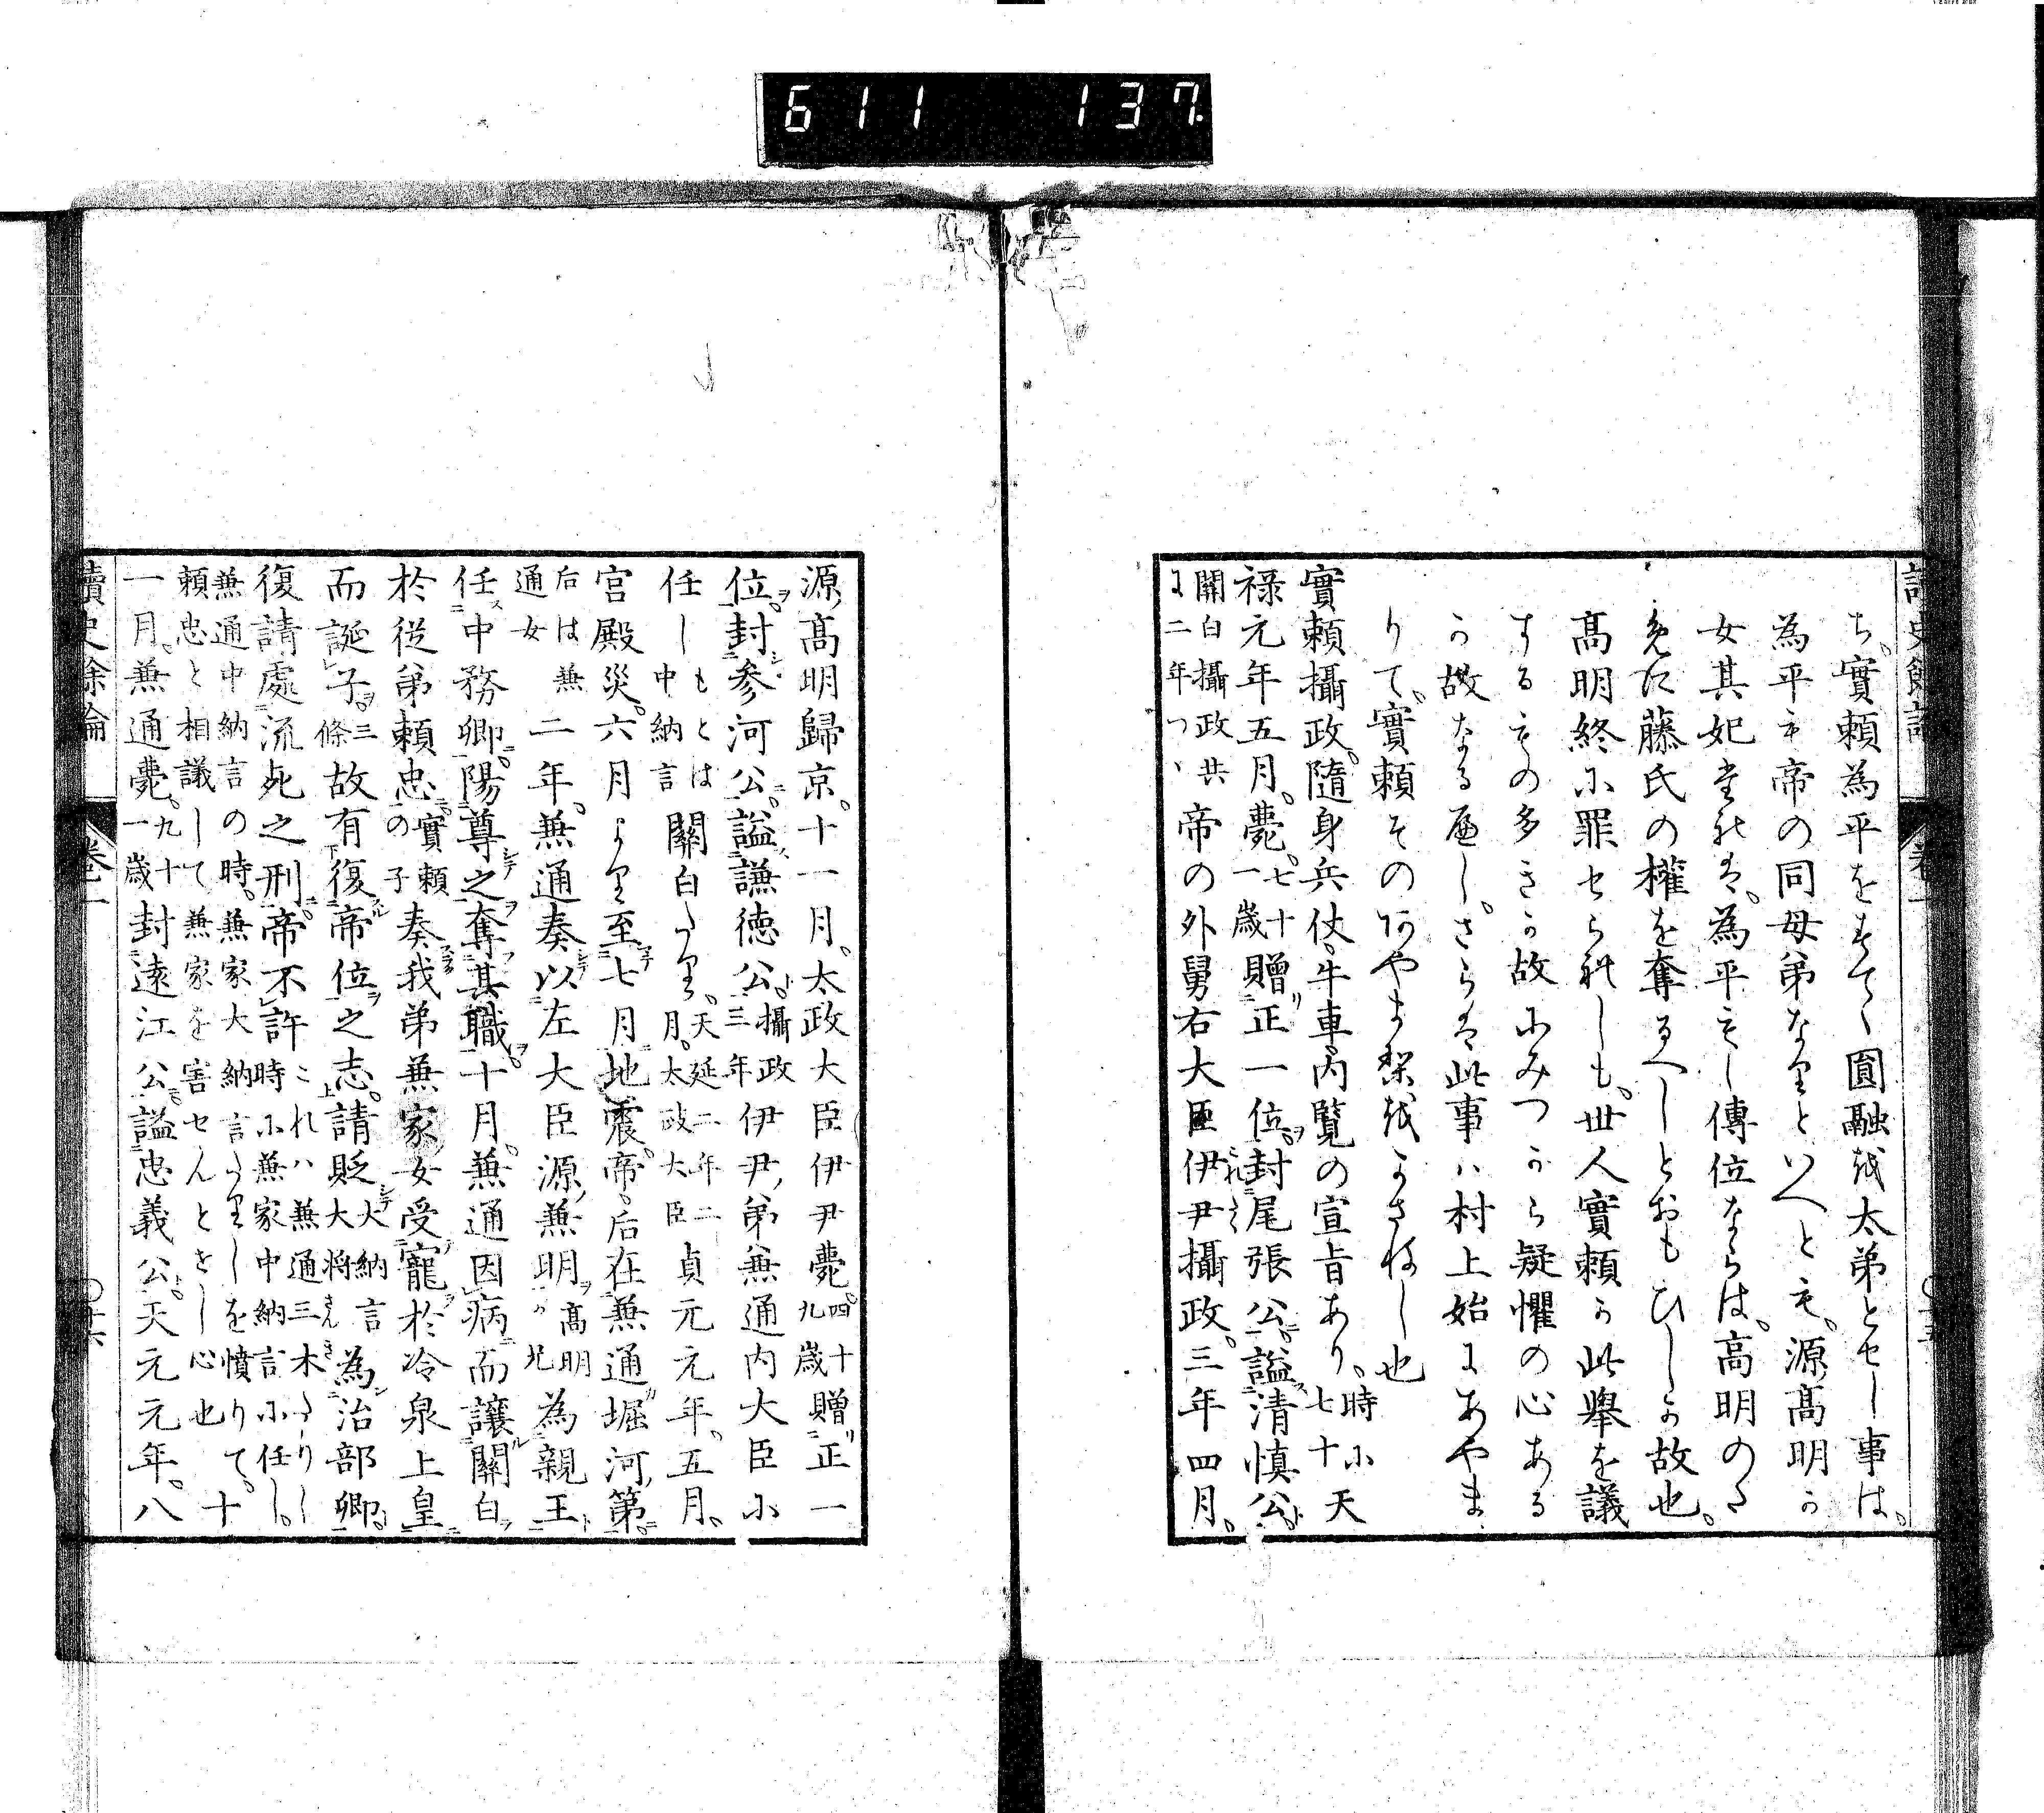 611 137
讀史餘論 卷一
ち。實頼為平をすてゝ圓融を太弟とせし事は。
為平も帝の同母弟なりといへとも。源高明か
女其妃たれは。為平もし傳位ならは。高明のた
めに藤氏の權を奪るへしとおもひしか故也。
高明終に罪せられしも。世人實頼か此舉を議
するものの多きか故にみつから疑懼の心ある
か故なるへし。さらは此事ハ村上始にあやま
りて。實頼そのあやまりをかさねし也
實頼攝政。隨身兵仗。牛車。内覧の宣旨あり。時に七十天
禄元年五月。薨。七十一歳贈正一位。封尾張公。謚清慎公。
關白攝政共に二年つゝ帝の外舅右大臣伊尹攝政。三年四月。
源高明歸京。十一月。太政大臣伊尹薨。四十九歳贈正一
位。封参河公。謚謙徳公。攝政三年伊尹弟兼通内大臣に
任しもとは中納言關白たり。天延二年二月。太政大臣貞元元年。五月。
宮殿災。六月より至七月地震。帝。后在兼通堀河第。
后は兼通女二年。兼通奏以左大臣源兼明高明か兄為親王
任中務卿。陽尊之奪其職。十月。兼通因病而讓關白
於從弟頼忠。實頼の子奏我弟兼家女受寵於冷泉上皇
而誕子。三條故有復帝位之志。請貶大納言大将為治部卿。
復請處流死之刑。帝不許これハ兼通三木たりし時に兼家中納言に任し。
兼通中納言の時。兼家大納言たりしを憤りて。頼忠と相議して兼家を害せんとせし心也十
一月。兼通薨。九十一歳封遠江公。謚忠義公。天元元年。八
讀史餘論 卷一 〇十六